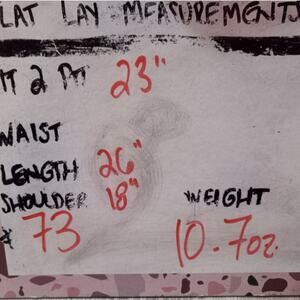 LAT LAY MEASUREMENTS
IT 2 PIT 23"
WAIST
LENGTH 26"
SHOULDER 18"
# 73
WEIGHT
10.7oz.